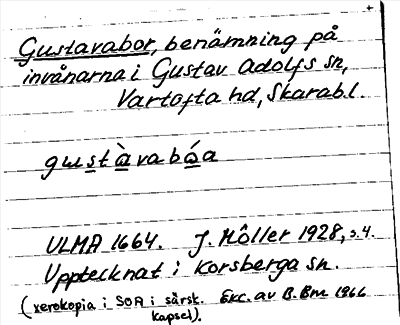 Gustavabor, benämning på
invånarna i Gustav Adolfs sn,
Vartofta hd, Skarabl.
gustàvabóa
ULMA 1664. J. Möller 1928, s.4.
Upptecknat i Korsberga sn.
(xerokopia i SOA i särsk. Exc. av B.Bm 1966
kapsel).